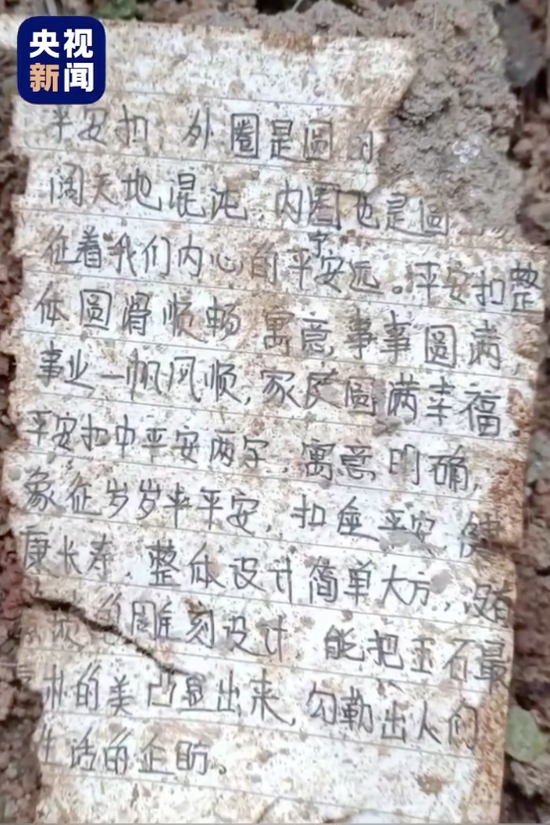 央视
新闻
平安扣，外圈是圆
阔天地混沌，内圈也是圆
征着我们内心的平安宁远。平安扣整
体圆滑顺畅 寓意事事圆满，
事业一帆风顺，家庭圆满幸福。
平安扣中平安两字，寓意明确，
象征岁岁平平安，扣座平安，健
康长寿，整体设计简单大方，没有
雕刻设计 能把玉石最
的美凸显出来，勾勒出人们
生活的企盼。